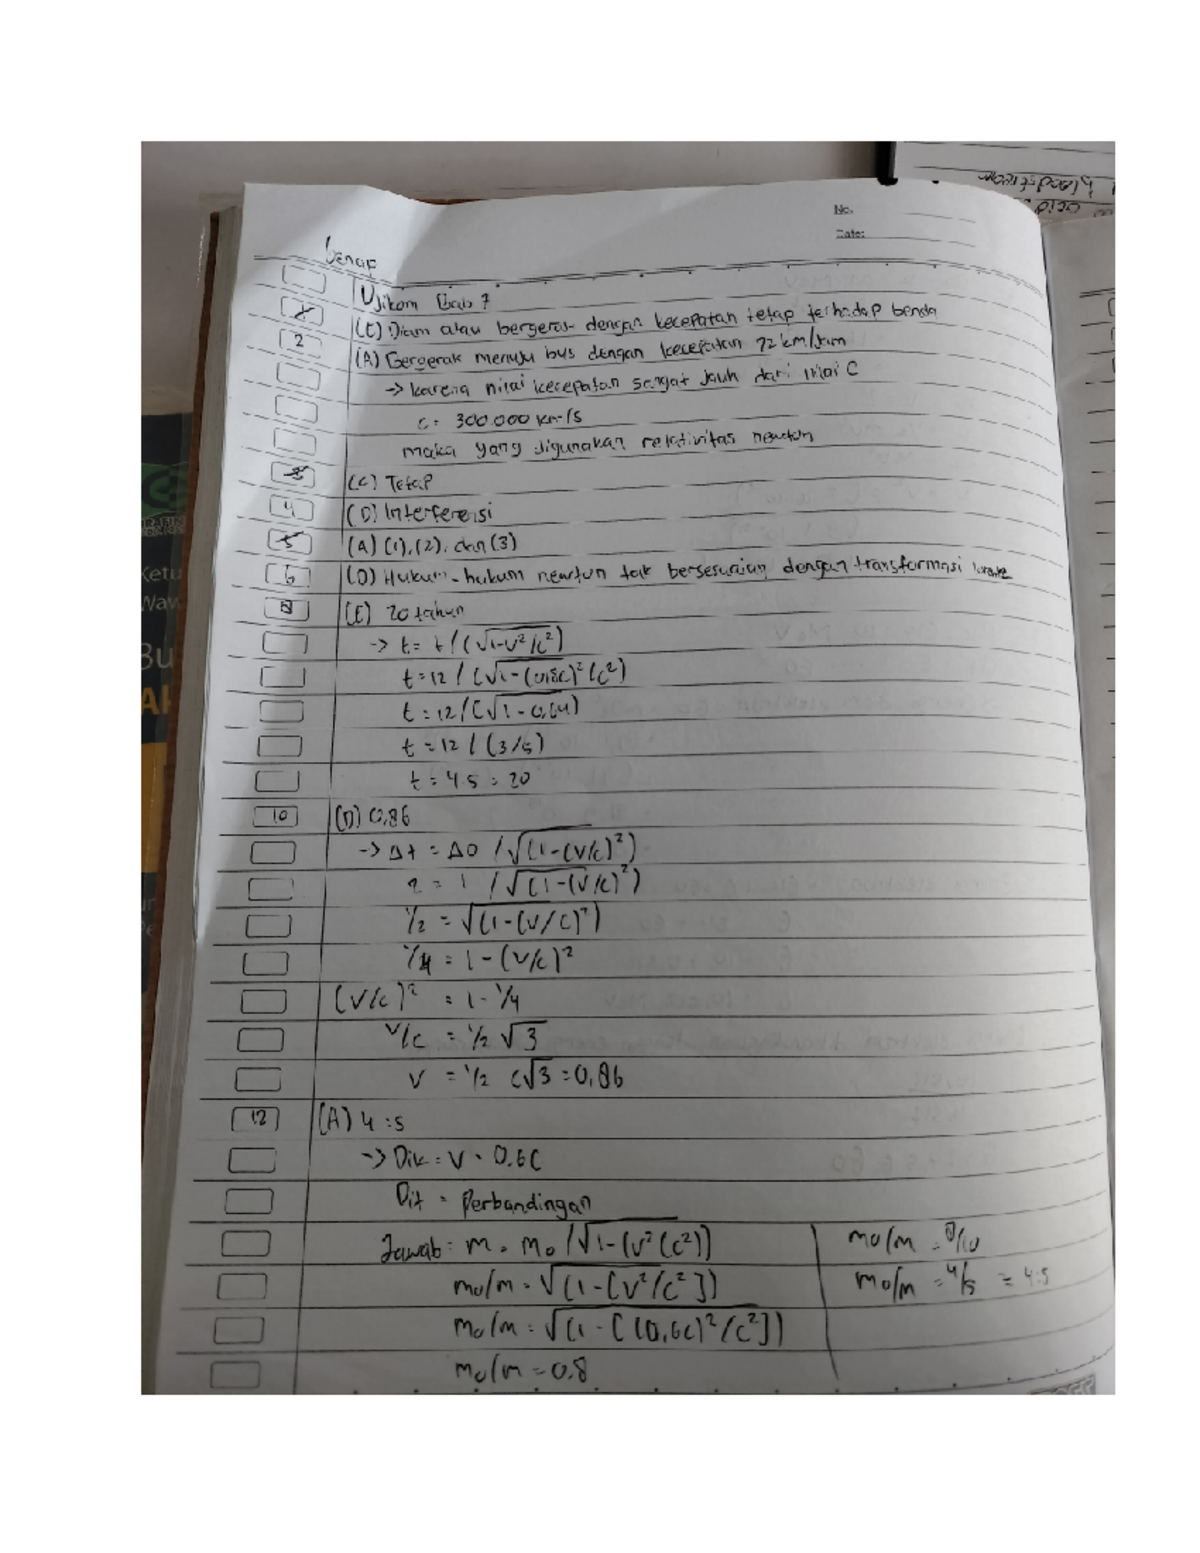 No.
Date:
benar
Ujikom Bab 7
1 (E) Diam atau bergerak dengan kecepatan tetap terhadap benda
2 (A) Bergerak menuju bus dengan kecepatan 72 km/jam
-> karena nilai kecepatan sangat jauh dari nilai C
c = 300.000 km/s
maka yang digunakan relativitas newton
3 (C) Tetap
4 (D) Interferensi
5 (A) (1), (2), dan (3)
6 (D) Hukum-hukum newton tak bersesuaian dengan transformasi
8 (E) 20 tahun
-> t = t / (√1-v²/c²)
t = 12 / (√1-(0,8c)²/c²)
t = 12 / (√1-0,64)
t = 12 / (3/5)
t = 4.5 = 20
10 (D) 0,86
-> Δt = Δ0 / √(1-(v/c)²)
2 = 1 / √(1-(v/c)²)
1/2 = √(1-(v/c)²)
1/4 = 1-(v/c)²
(v/c)² = 1-1/4
v/c = 1/2 √3
v = 1/2 c√3 = 0,86
12 (A) 4 : 5
-> Dik = v = 0.6c
Dit = Perbandingan
Jawab = m = mo / √1-(v²/c²)
mo/m = √(1-[v²/c²])
mo/m = √(1-[(0,6c)²/c²])
mo/m = 0.8
mo/m = 8/10
mo/m = 4/5 = 4:5
Ketu
Waw
Bu
bloodstream
acid